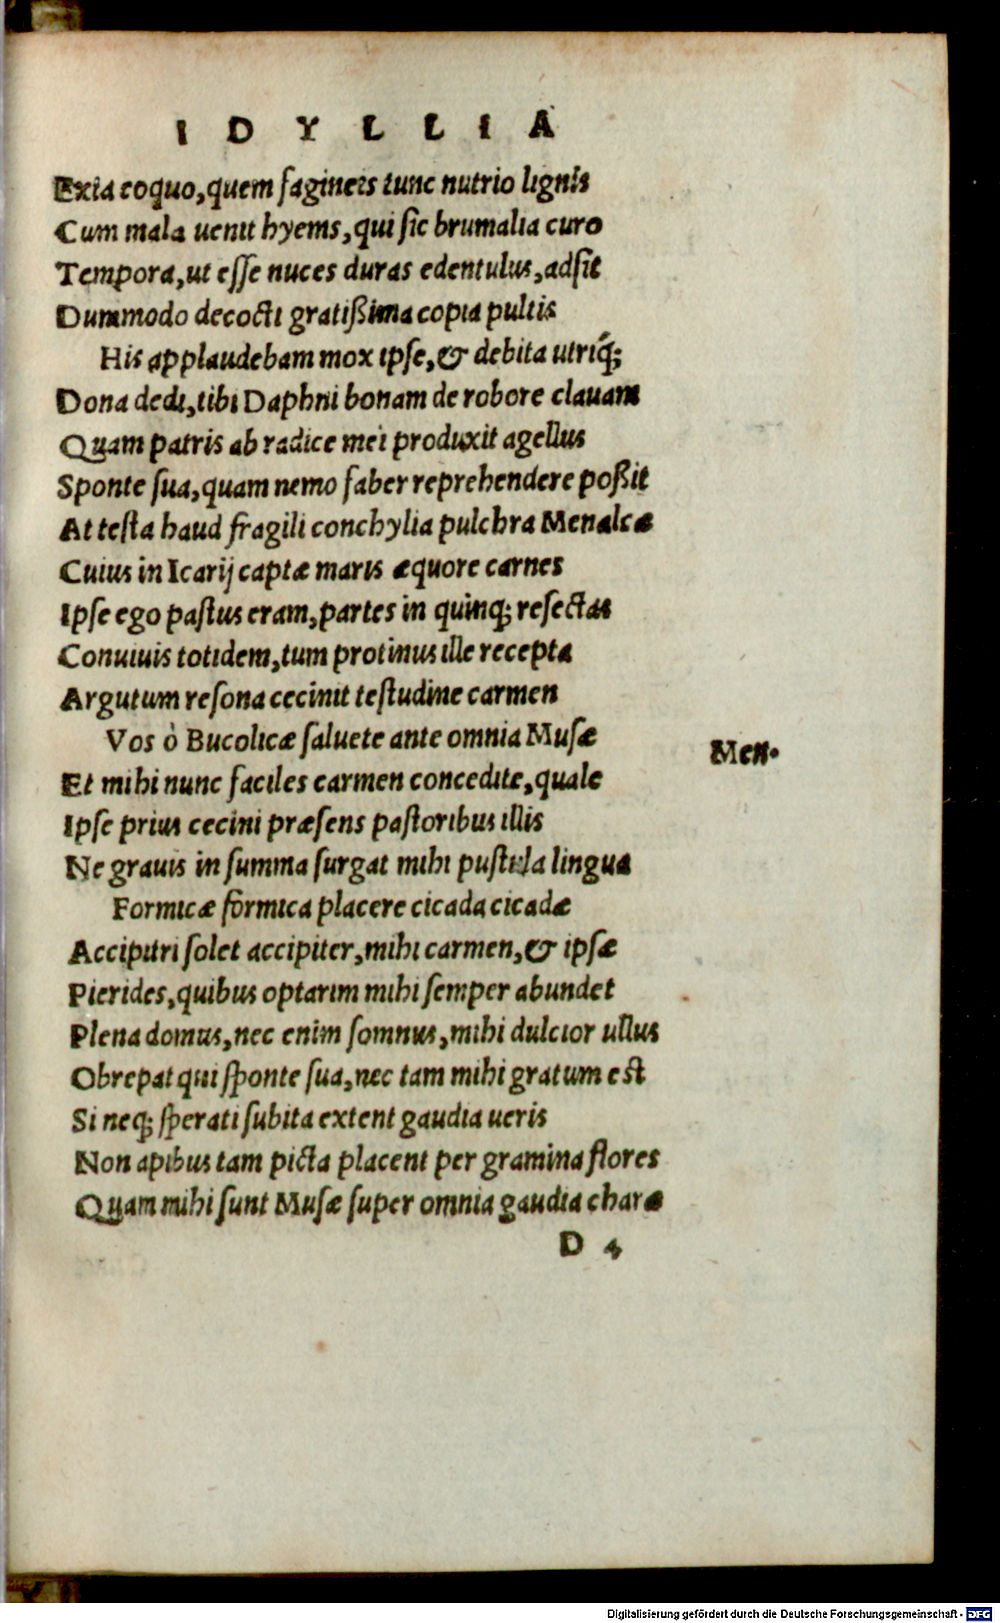 IDYLLIA
Exta coquo, quem fagineis tunc nutrio lignis
Cum mala uenit hyems, qui sic brumalia curo
Tempora, ut esse nuces duras edentulus, adsit
Dummodo decocti gratißima copia pultis
His applaudebam mox ipse, & debita utriq́;
Dona dedi, tibi Daphni bonam de robore clauam
Quam patris ab radice mei produxit agellus
Sponte sua, quam nemo faber reprehendere poßit
At testa haud fragili conchylia pulchra Menalcæ
Cuius in Icarij captæ maris æquore carnes
Ipse ego pastus eram, partes in quinq; resectas
Conuiuis totidem, tum protinus ille recepta
Argutum resona cecinit testudine carmen
Vos ò Bucolicæ saluete ante omnia Musæ
Men.
Et mihi nunc faciles carmen concedite, quale
Ipse prius cecini præsens pastoribus illis
Ne grauis in summa surgat mihi pustula lingua
Formicæ formica placere cicada cicadæ
Accipitri solet accipiter, mihi carmen, & ipsæ
Pierides, quibus optarim mihi semper abundet
Plena domus, nec enim somnus, mihi dulcior ullus
Obrepat qui sponte sua, nec tam mihi gratum est
Si neq; sperati subita extent gaudia ueris
Non apibus tam picta placent per gramina flores
Quam mihi sunt Musæ super omnia gaudia charæ
D 4
Digitalisierung gefördert durch die Deutsche Forschungsgemeinschaft - DFG